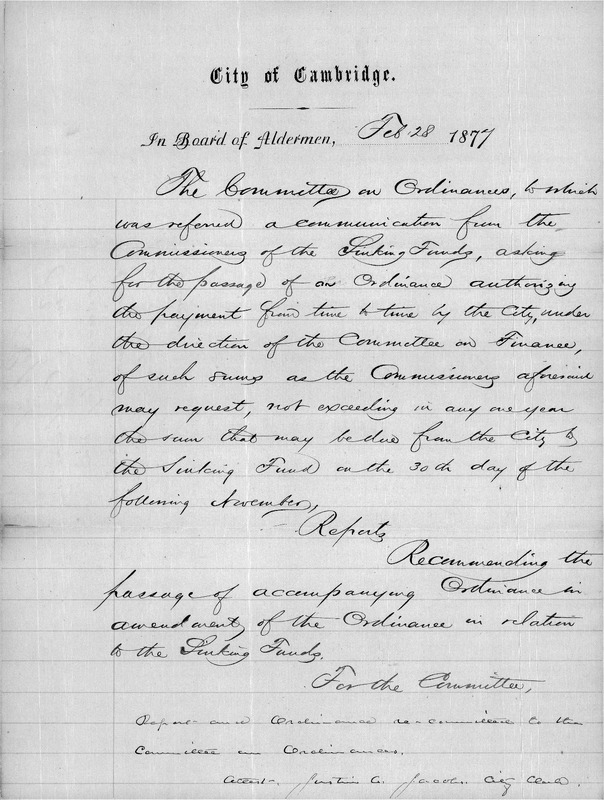 City of Cambridge.
In Board of Aldermen, Feb 28 1877
The Committee on Ordinances, to which
was referred a communication from the
Commissioners of the Sinking Funds, asking
for the passage of an Ordinance authorizing
the payment from time to time by the City, under
the direction of the Committee on Finance,
of such sums as the Commissioners aforesaid
may request, not exceeding in any one year
the sum that may be due from the City to
the Sinking Fund on the 30th day of the
following November,
Reports
Recommending the
passage of accompanying Ordinance in
amendment of the Ordinance in relation
to the Sinking Funds.
For the Committee,
Report and Ordinance re-committed to the
Committee on Ordinances.
Attest. Justin A. Jacobs. City Clerk.